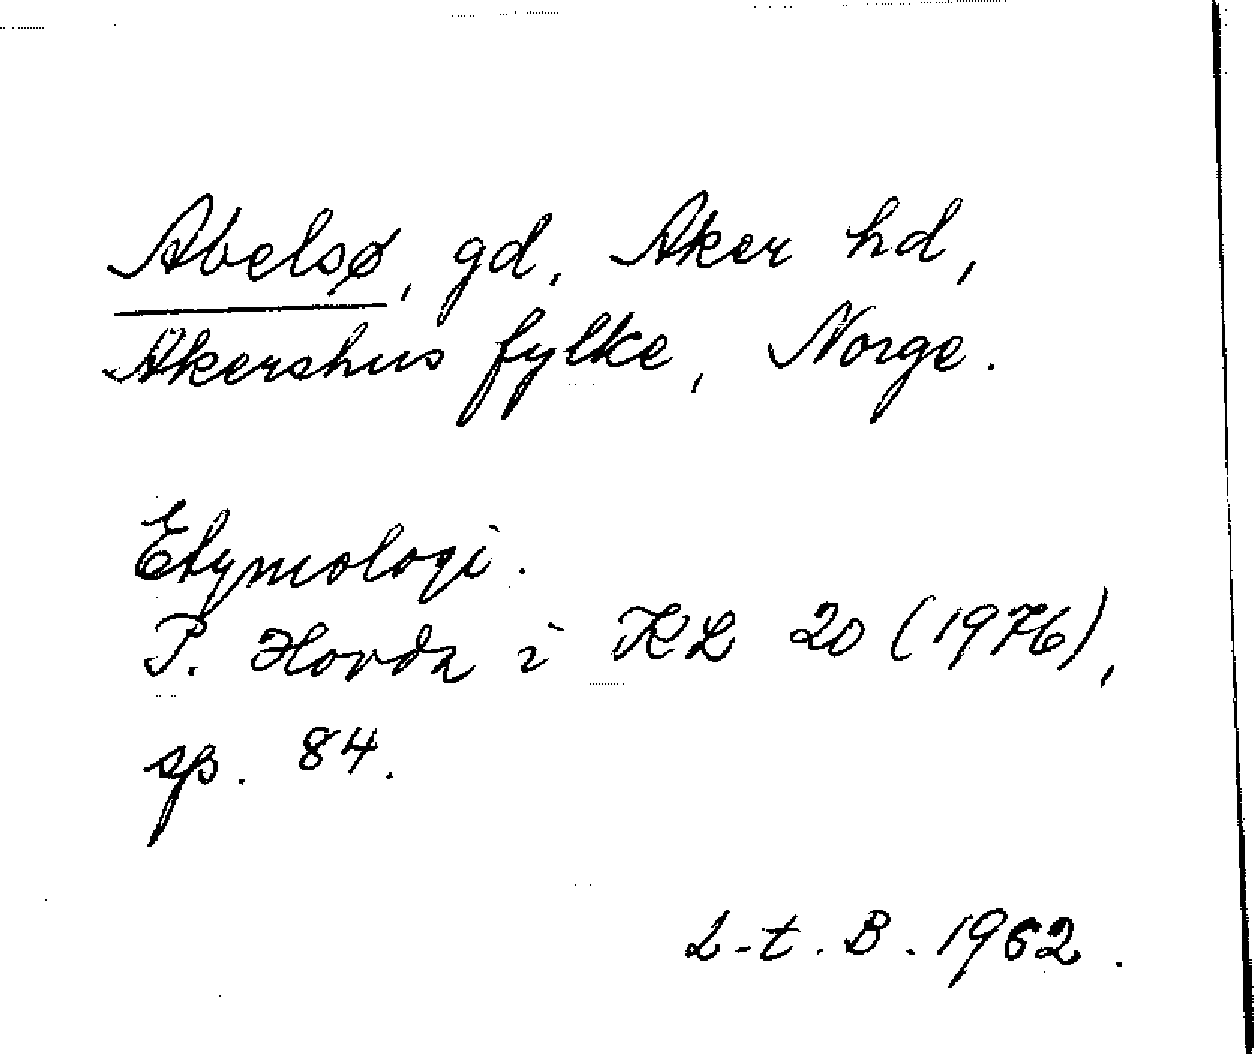 Abelsø, gd, Aker hd,
Akershus fylke, Norge.
Etymologi.
P. Hovda i KL 20 (1976),
sp. 84.
L-t. B. 1962.